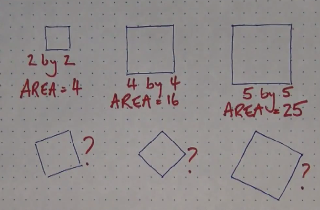 2 by 2
AREA = 4
4 by 4
AREA = 16
5 by 5
AREA = 25
?
?
?